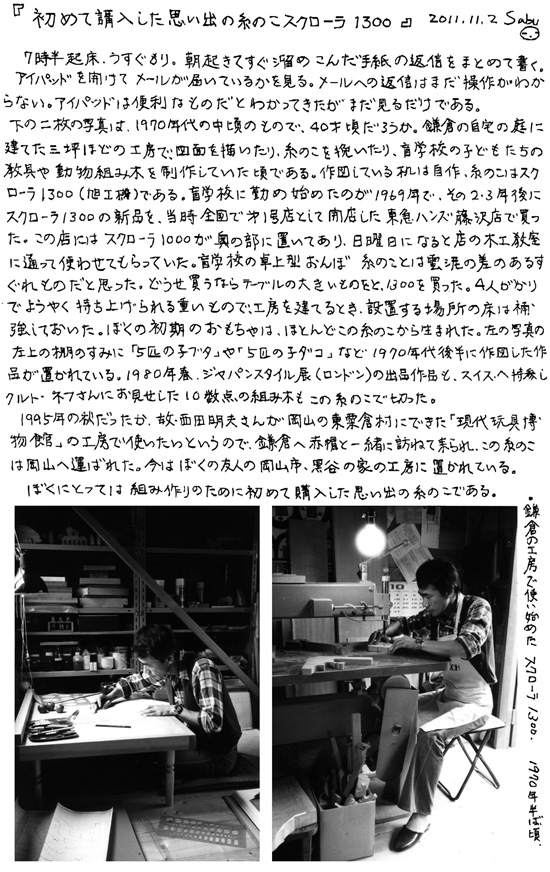 『 初めて購入した思い出の糸のこスクローラ1300 』 2011.11.2 Sabu
7時半起床、うすぐもり。朝起きてすぐ溜めこんだ手紙の返信をまとめて書く。
アイパッドを開けてメールが届いているかを見る。メールへの返信はまだ操作がわか
らない。アイパッドは便利なものだとわかってきたがまだ見るだけである。
下の二枚の写真は、1970年代の中頃のもので、40才頃だろうか。鎌倉の自宅の庭に
建てた三坪ほどの工房で、図面を描いたり、糸のこを挽いたり、盲学校の子どもたちの
教具や動物組み木を制作していた頃である。作図している机は自作、糸のこはスク
ローラ1300(旭工機)である。盲学校に勤め始めたのが1969年で、その2・3年後に
スクローラ1300の新品を、当時全国で第1号店として開店した東急ハンズ藤沢店で買っ
た。この店にはスクローラ1000が奥の部に置いてあり、日曜日になると店の木工教室
に通って使わせてもらっていた。盲学校の卓上型おんぼ 糸のことは雲泥の差のあるす
ぐれものだと思った。どうせ買うならテーブルの大きいものをと、1300を買った。4人がかり
でようやく持ち上げられる重いもので、工房を建てるとき、設置する場所の床は補
強しておいた。ぼくの初期のおもちゃは、ほとんどこの糸のこから生まれた。左の写真の
左上の棚のすみに「5匹の子ブタ」や「5匹の子ダコ」など1970年代後半に作図した作
品が置かれている。1980年春、ジャパンスタイル展(ロンドン)の出品作品も、スイスへ持参し
クルト・ネフさんにお見せした10数点の組み木もこの糸のこで切った。
1995年の秋だったか、故・西田明夫さんが岡山の東粟倉村にできた「現代玩具博
物館」の工房で使いたいというので、鎌倉へ赤帽と一緒に訪ねて来られ、この糸のこ
は岡山へ運ばれた。今はぼくの友人の岡山市、黒谷の家の工房に置かれている。
ぼくにとっては組み作りのために初めて購入した思い出の糸のこである。
・鎌倉の工房で使い始めた スクローラ1300. 1970年半ば頃.
10